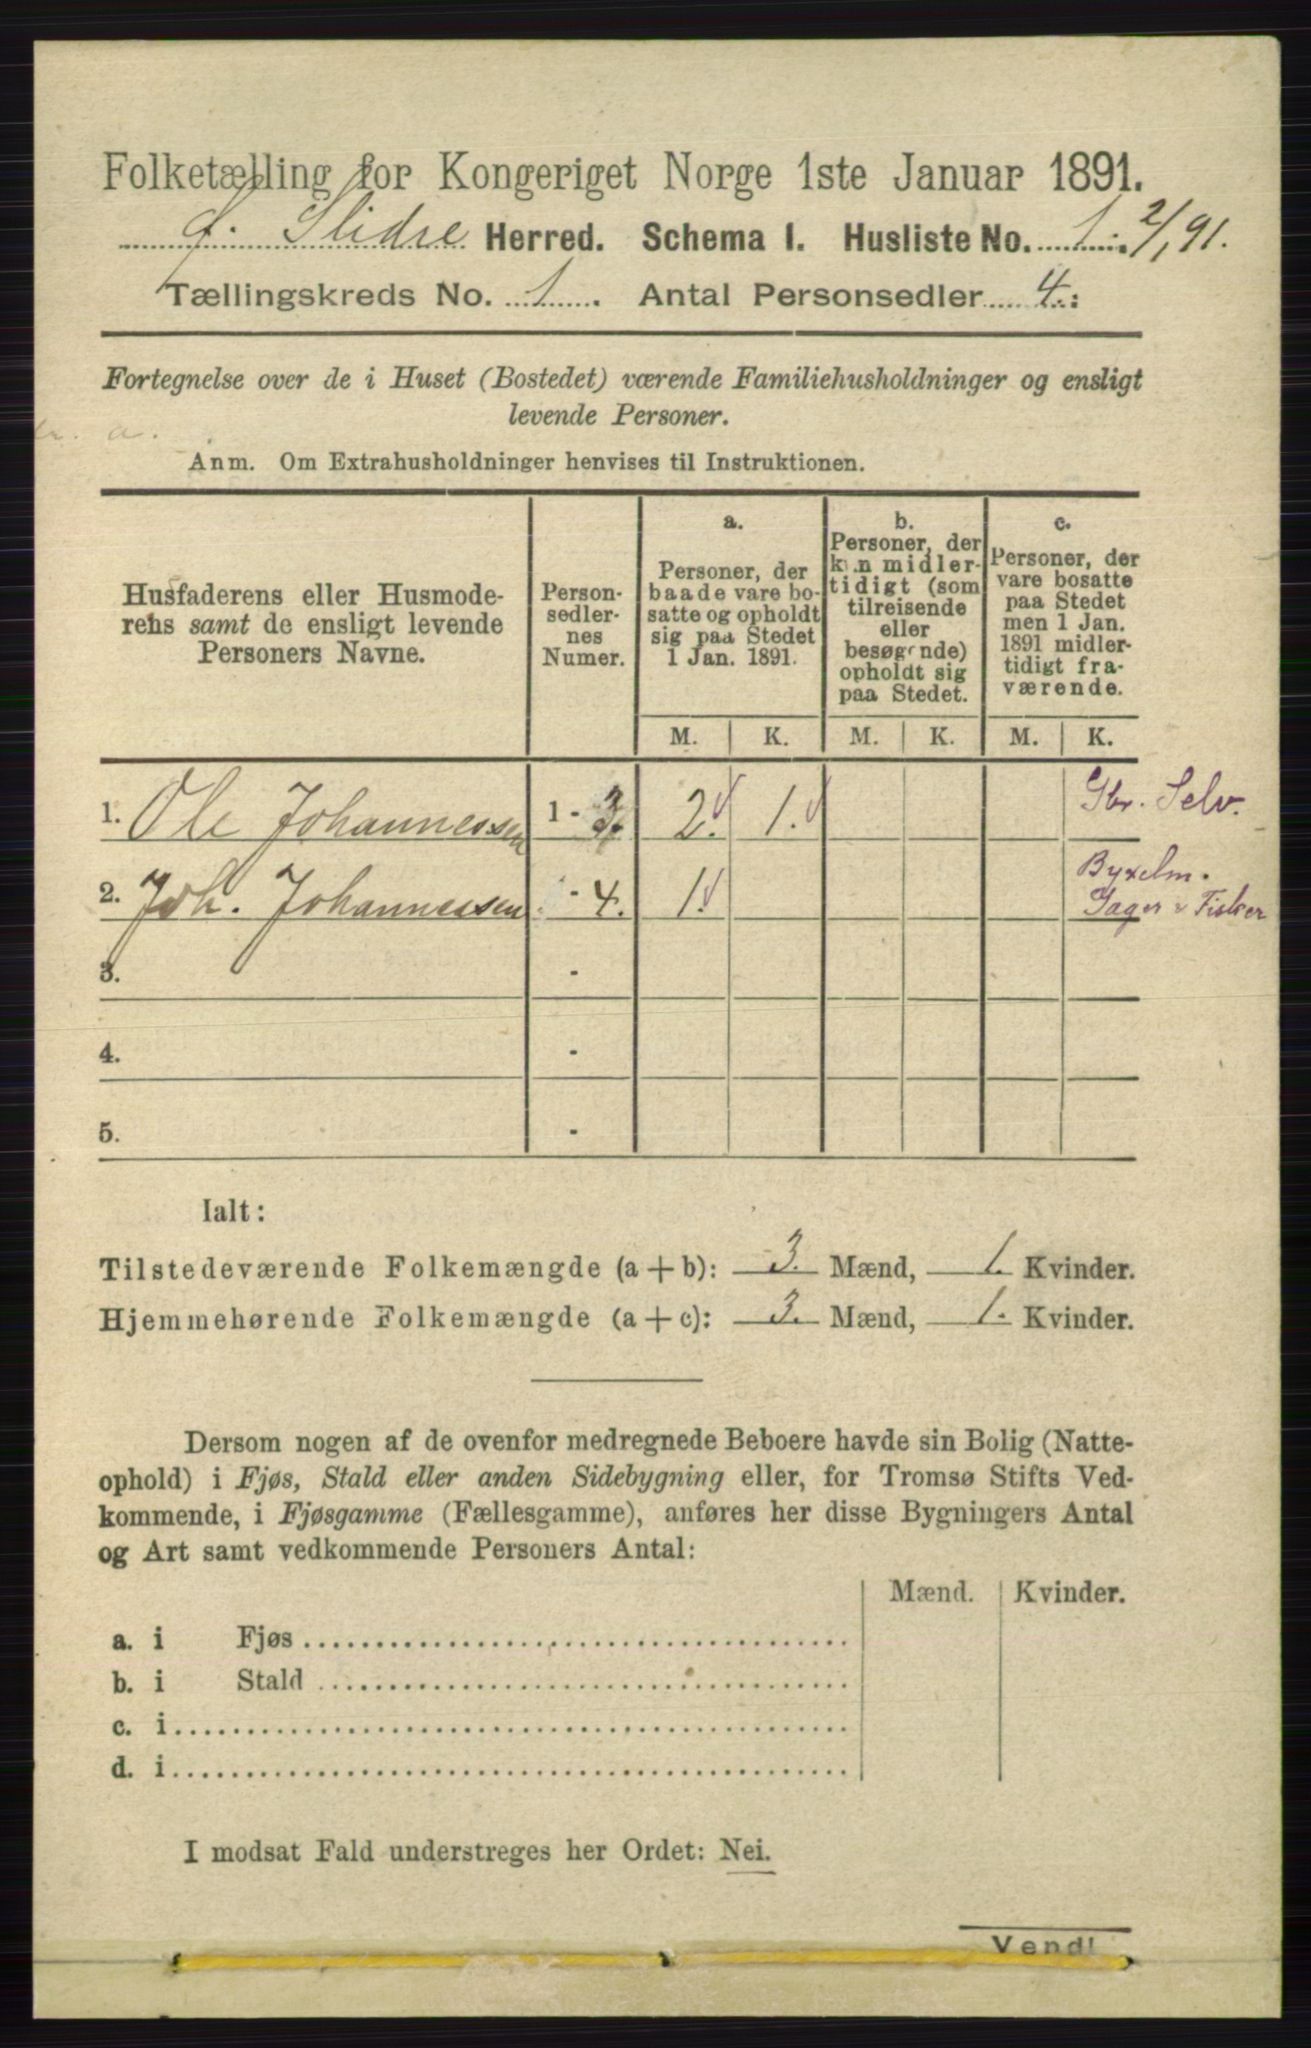 Folketælling for Kongeriget Norge 1ste Januar 1891.
S. Slidre Herred. Schema I. Husliste No. 1. 2/1 91.
Tællingskreds No. 1. Antal Personsedler 4.
Fortegnelse over de i Huset (Bostedet) værende Familiehusholdninger og ensligt
levende Personer.
Anm. Om Extrahusholdninger henvises til Instruktionen.
Husfaderens eller Husmode-
rens samt de ensligt levende
Personers Navne.
Person-
sedler-
nes
Numer.
a.
Personer, der
baade vare bo-
satte og opholdt
sig paa Stedet
1 Jan. 1891.
b.
Personer, der
kun midler-
tidigt (som
tilreisende
eller
besøgende)
opholdt sig
paa Stedet.
c.
Personer, der
vare bosatte
paa Stedet
men 1 Jan.
1891 midler-
tidigt fra-
værende.
M. K. M. K. M. K.
1. Ole Johannessen 1 - 3. 2. 1. Gbr. Selv.
2. Joh. Johannessen - 4. 1. Byxelm.
Jager & Fisker
3. -
4. -
5. -
Ialt:
Tilstedeværende Folkemængde (a + b): 3. Mænd, 1. Kvinder.
Hjemmehørende Folkemængde (a + c): 3. Mænd, 1. Kvinder.
Dersom nogen af de ovenfor medregnede Beboere havde sin Bolig (Natte-
ophold) i Fjøs, Stald eller anden Sidebygning eller, for Tromsø Stifts Ved-
kommende, i Fjøsgamme (Fællesgamme), anføres her disse Bygningers Antal
og Art samt vedkommende Personers Antal:
Mænd. Kvinder.
a. i Fjøs
b. i Stald
c. i
d. i
I modsat Fald understreges her Ordet: Nei.
Vend!